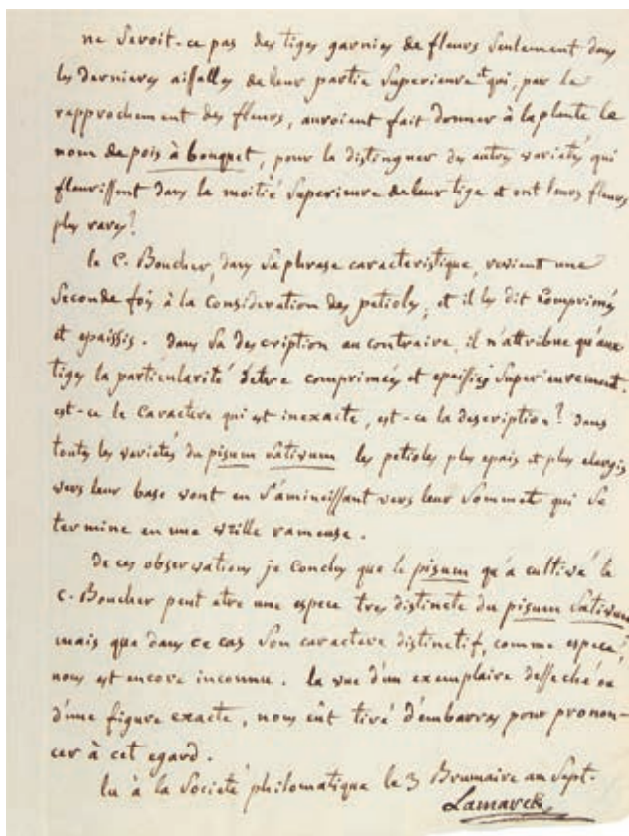 ne seroit-ce pas des tiges garnies de fleurs seulement dans
les dernieres aisselles de leur partie superieure et qui, par le
rapprochement des fleurs, auroient fait donner à la plante le
nom de pois à bouquet, pour la distinguer des autres varietés qui
fleurissent dans la moitié superieure de leur tige et ont leurs fleurs
plus rares?
le C. Boucher, dans sa phrase caracteristique, revient une
seconde fois à la consideration des petioles, et il les dit comprimés
et epaissis. dans sa description au contraire, il n'attribue qu'aux
tiges la particularité d'etre comprimées et epaissies superieurement.
est-ce le caractere qui est inexacte, est-ce la description? dans
toutes les varietés du pisum sativum les petioles plus epais et plus elargis
vers leur base vont en s'amincissant vers leur sommet qui se
termine en une vrille rameuse.
de ces observations je conclus que le pisum qu'a cultivé le
C. Boucher peut etre une espece tres distincte du pisum sativum
mais que dans ce cas son caractere distinctif, comme espece,
nous est encore inconnu. la vue d'un exemplaire desseché ou
d'une figure exacte, nous eût tiré d'embarras pour pronon-
cer à cet egard.
lu à la Societé philomatique le 3 Brumaire an Sept.
Lamarck